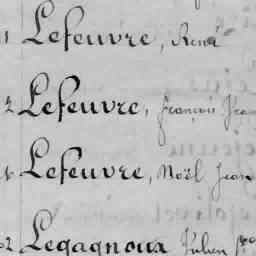 Lefeuvre, René
Lefeuvre, françois Jean
Lefeuvre, Noël Jean
Legagnoux Julien